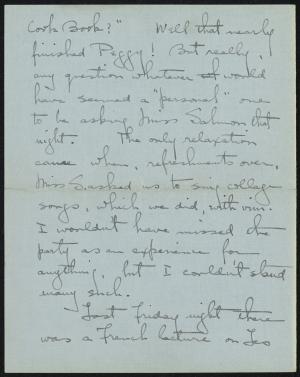 Cook Book?" Well that nearly
finished Peggy! But really,
any question whatever would
have seemed a "personal" one
to be asking Miss Salmon that
night. The only relaxation
came when, refreshments over,
Miss S. asked us to sing college
songs, which we did, with vim.
I wouldn't have missed the
party as an experience for
anything, but I couldn't stand
many such.
Last Friday night there
was a French lecture on Les